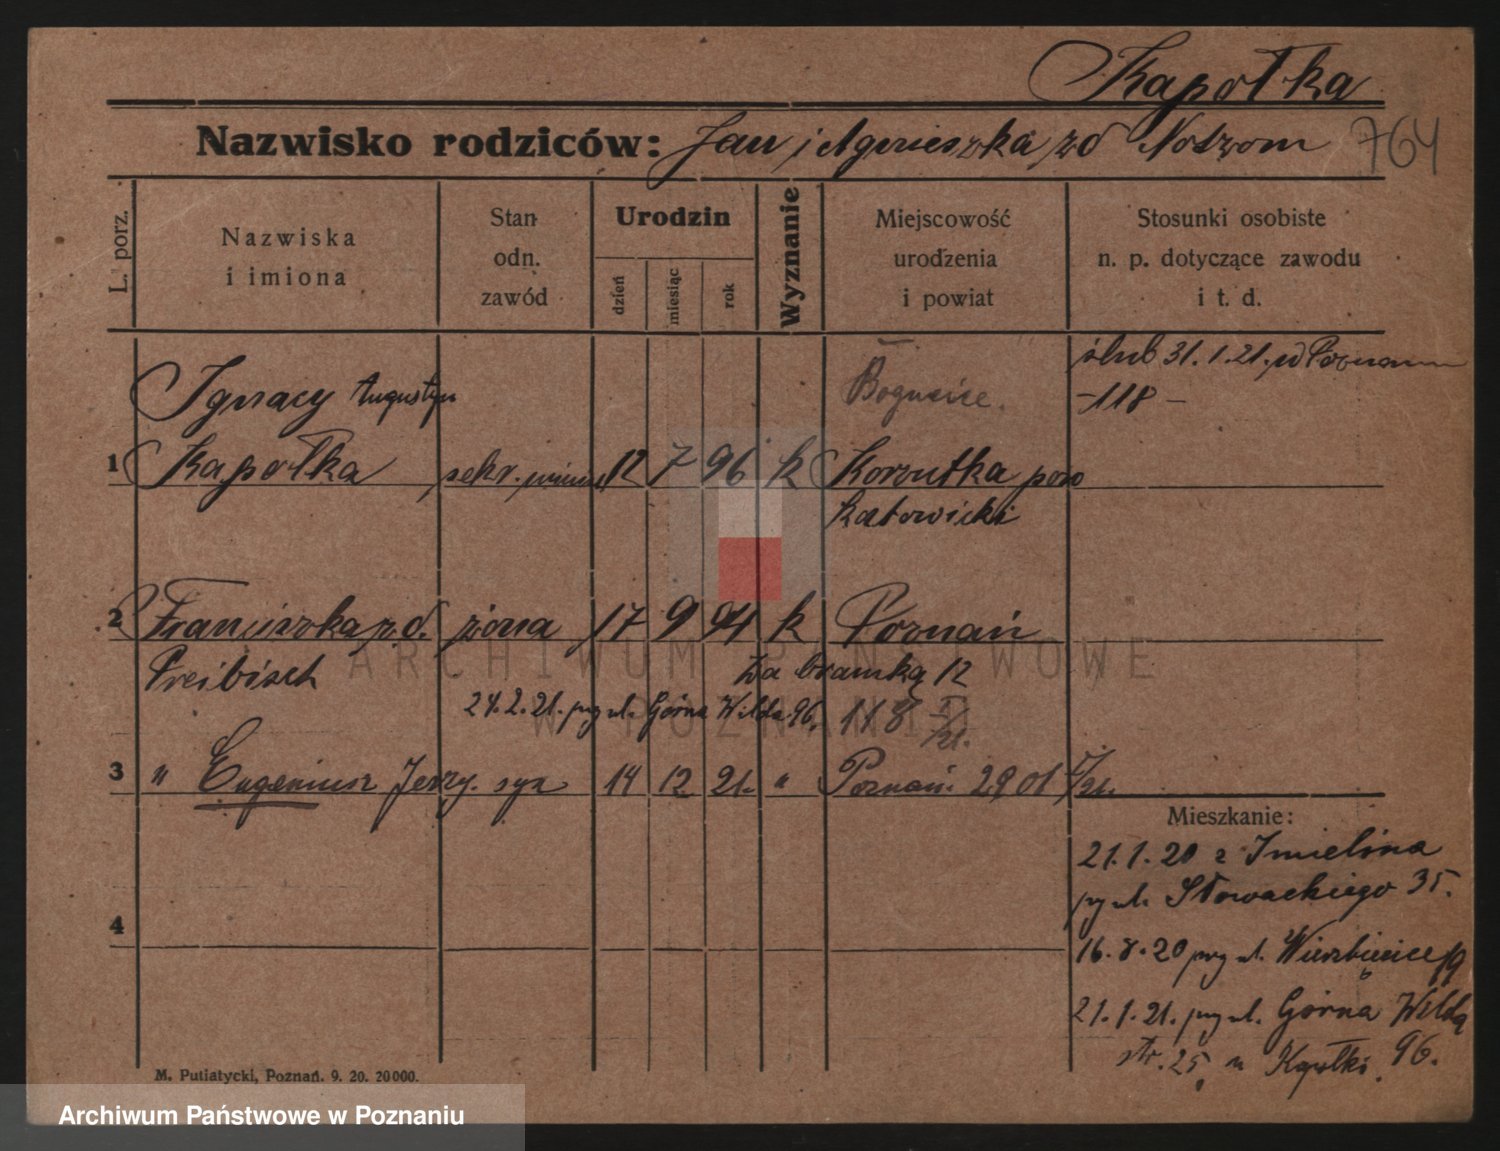 Kapołka
Nazwisko rodziców: Jan i Agnieszka zd 764
L. porz.
Nazwiska
i imiona
Stan
odn.
zawód
Urodzin
dzień
miesiąc
rok
Wyznanie
Miejscowość
urodzenia
i powiat
Stosunki osobiste
n. p. dotyczące zawodu
i t. d.
ślub 31.1.21. w Poznaniu
-118-
Ignacy Augustyn
Bogucice.
1 Kapołka sekr. 12 7 96 k Korzutka pow
Katowicki
2 Franciszka z d. żona 17 9 94 k Poznań
Preibisch Za bramką 12
24.2.21. przy ul. Górna Wilda 96. 118
3 " Eugeniusz Jerzy. syn 14 12 21. " Poznań. 2901 /21.
Mieszkanie:
21.1.20 z Imielina
przy ul. Słowackiego 35.
4
16.8.20 przy ul. Wierzbięcice 19
21.1.21. przy ul. Górna Wilda
str. 25, u Kapołki. 96.
M. Putiatycki, Poznań. 9. 20. 20000.
ARCHIWUM PAŃSTWOWE
W POZNANIU
Archiwum Państwowe w Poznaniu